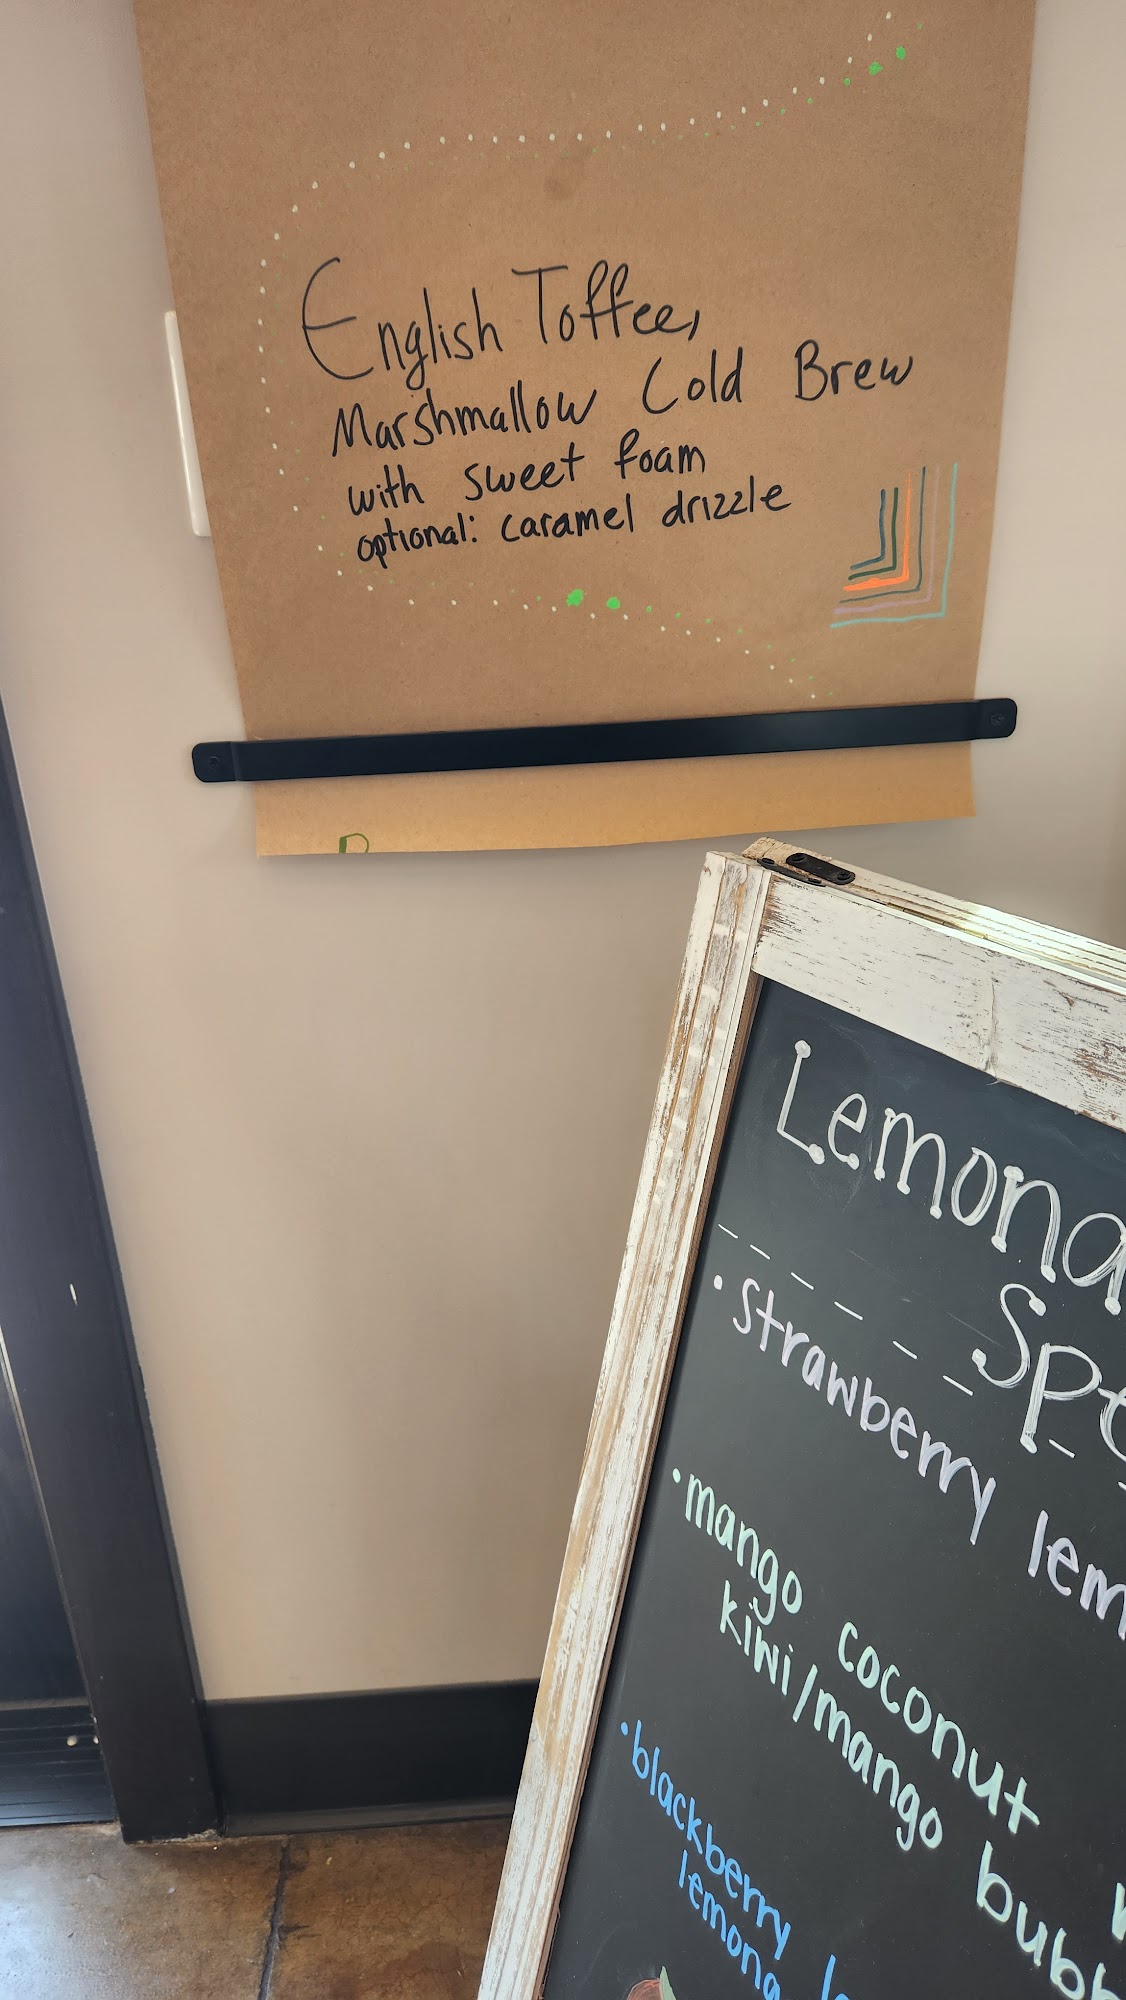 English Toffee,
Marshmallow Cold Brew
with sweet foam
optional: caramel drizzle
• strawberry
• mango coconut
kiwi/mango
• blackberry